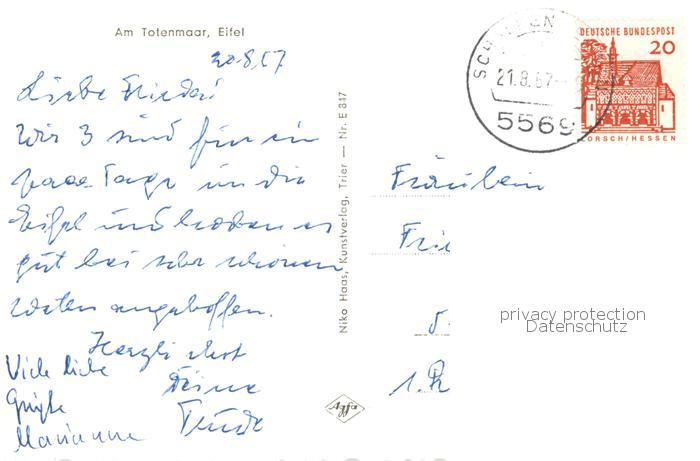 Am Totenmaar, Eifel
20.8.67
Liebe Frieda!
Wir 3 sind für ein
paar Tage in die
Eifel und haben es
gut bei sehr schönem
Wetter angetroffen.
Herzlichst
Deine
Trude
Viele liebe
Grüße
Marianne
Niko Haas, Kunstverlag, Trier — Nr. E 847
Agfa
SCH EN
21.8.67
5569
DEUTSCHE BUNDESPOST
20
LORSCH/HESSEN
Fräulein
Frie
privacy protection
Datenschutz